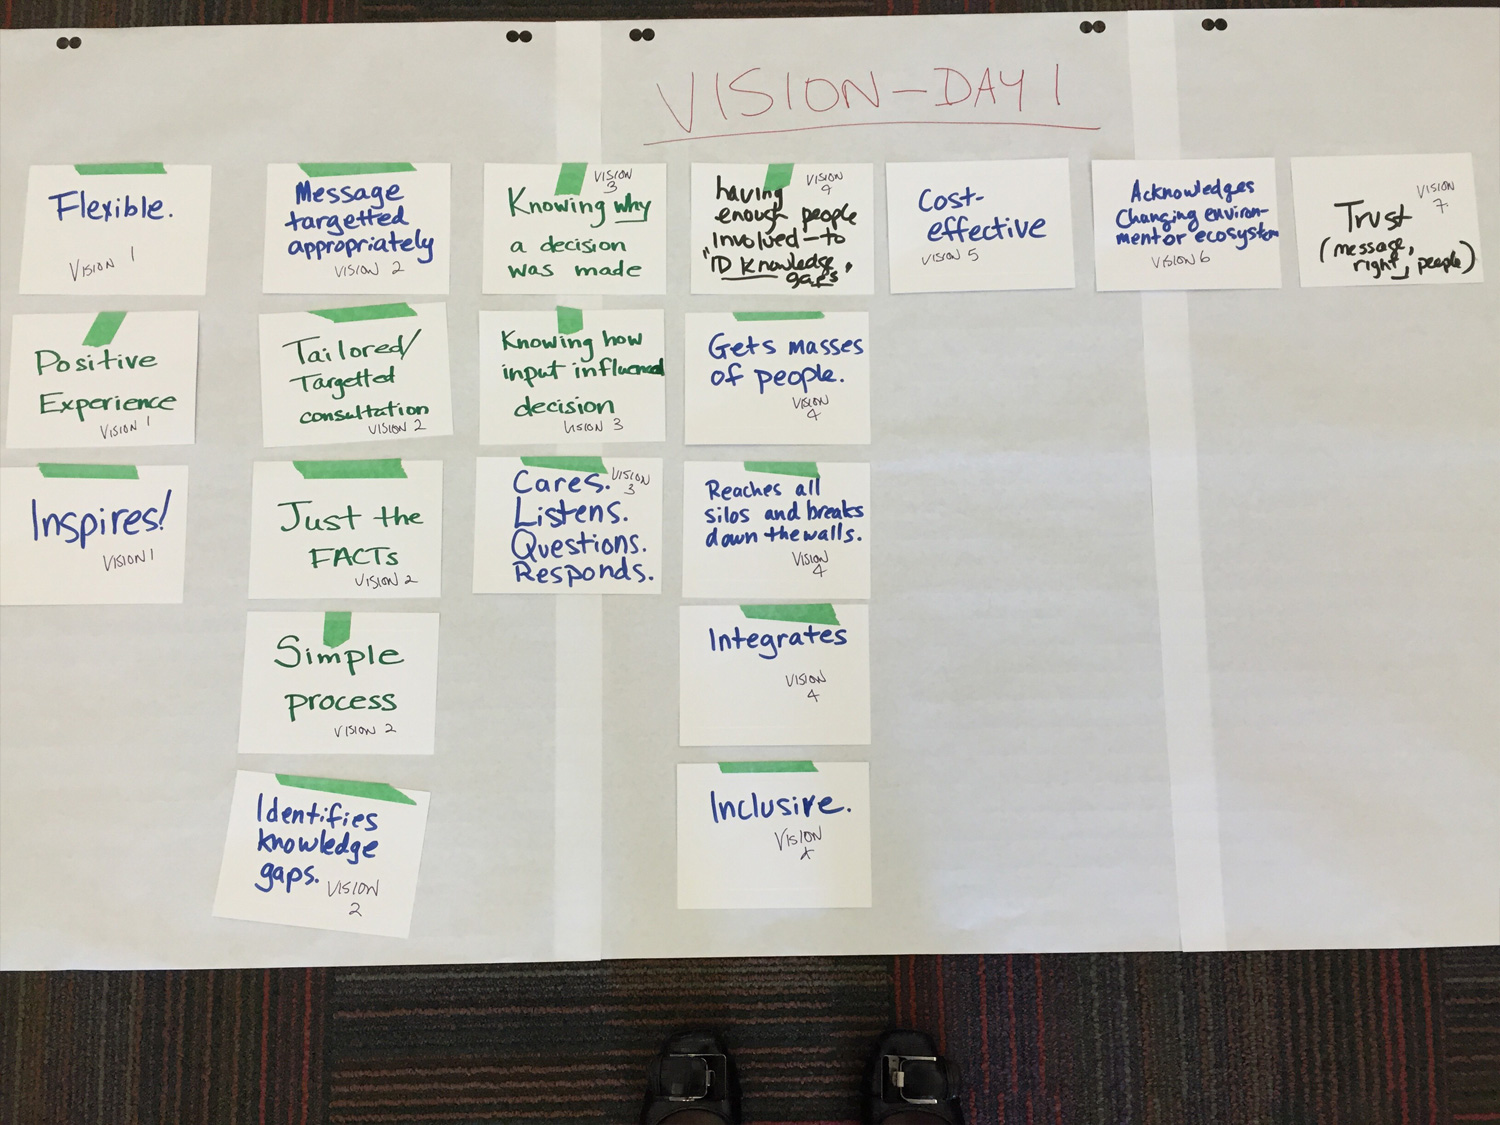 VISION - DAY 1
Flexible.
VISION 1
Positive
Experience
VISION 1
Inspires!
VISION 1
Message
targetted
appropriately
VISION 2
Tailored/
Targetted
consultation
VISION 2
Just the
FACTs
VISION 2
Simple
process
VISION 2
Identifies
knowledge
gaps.
VISION
2
VISION
3
Knowing why
a decision
was made
Knowing how
input influenced
decision
VISION 3
Cares.
VISION
3
Listens.
Questions.
Responds.
VISION
4
having
enough people
involved - to
"ID Knowledge
gaps"
Gets masses
of people.
VISION
4
Reaches all
silos and breaks
down the walls.
VISION
4
Integrates
VISION
4
Inclusive.
VISION
4
Cost-
effective
VISION 5
Acknowledges
changing environ-
ment or ecosystem
VISION 6
VISION
7
Trust
(message,
right people)